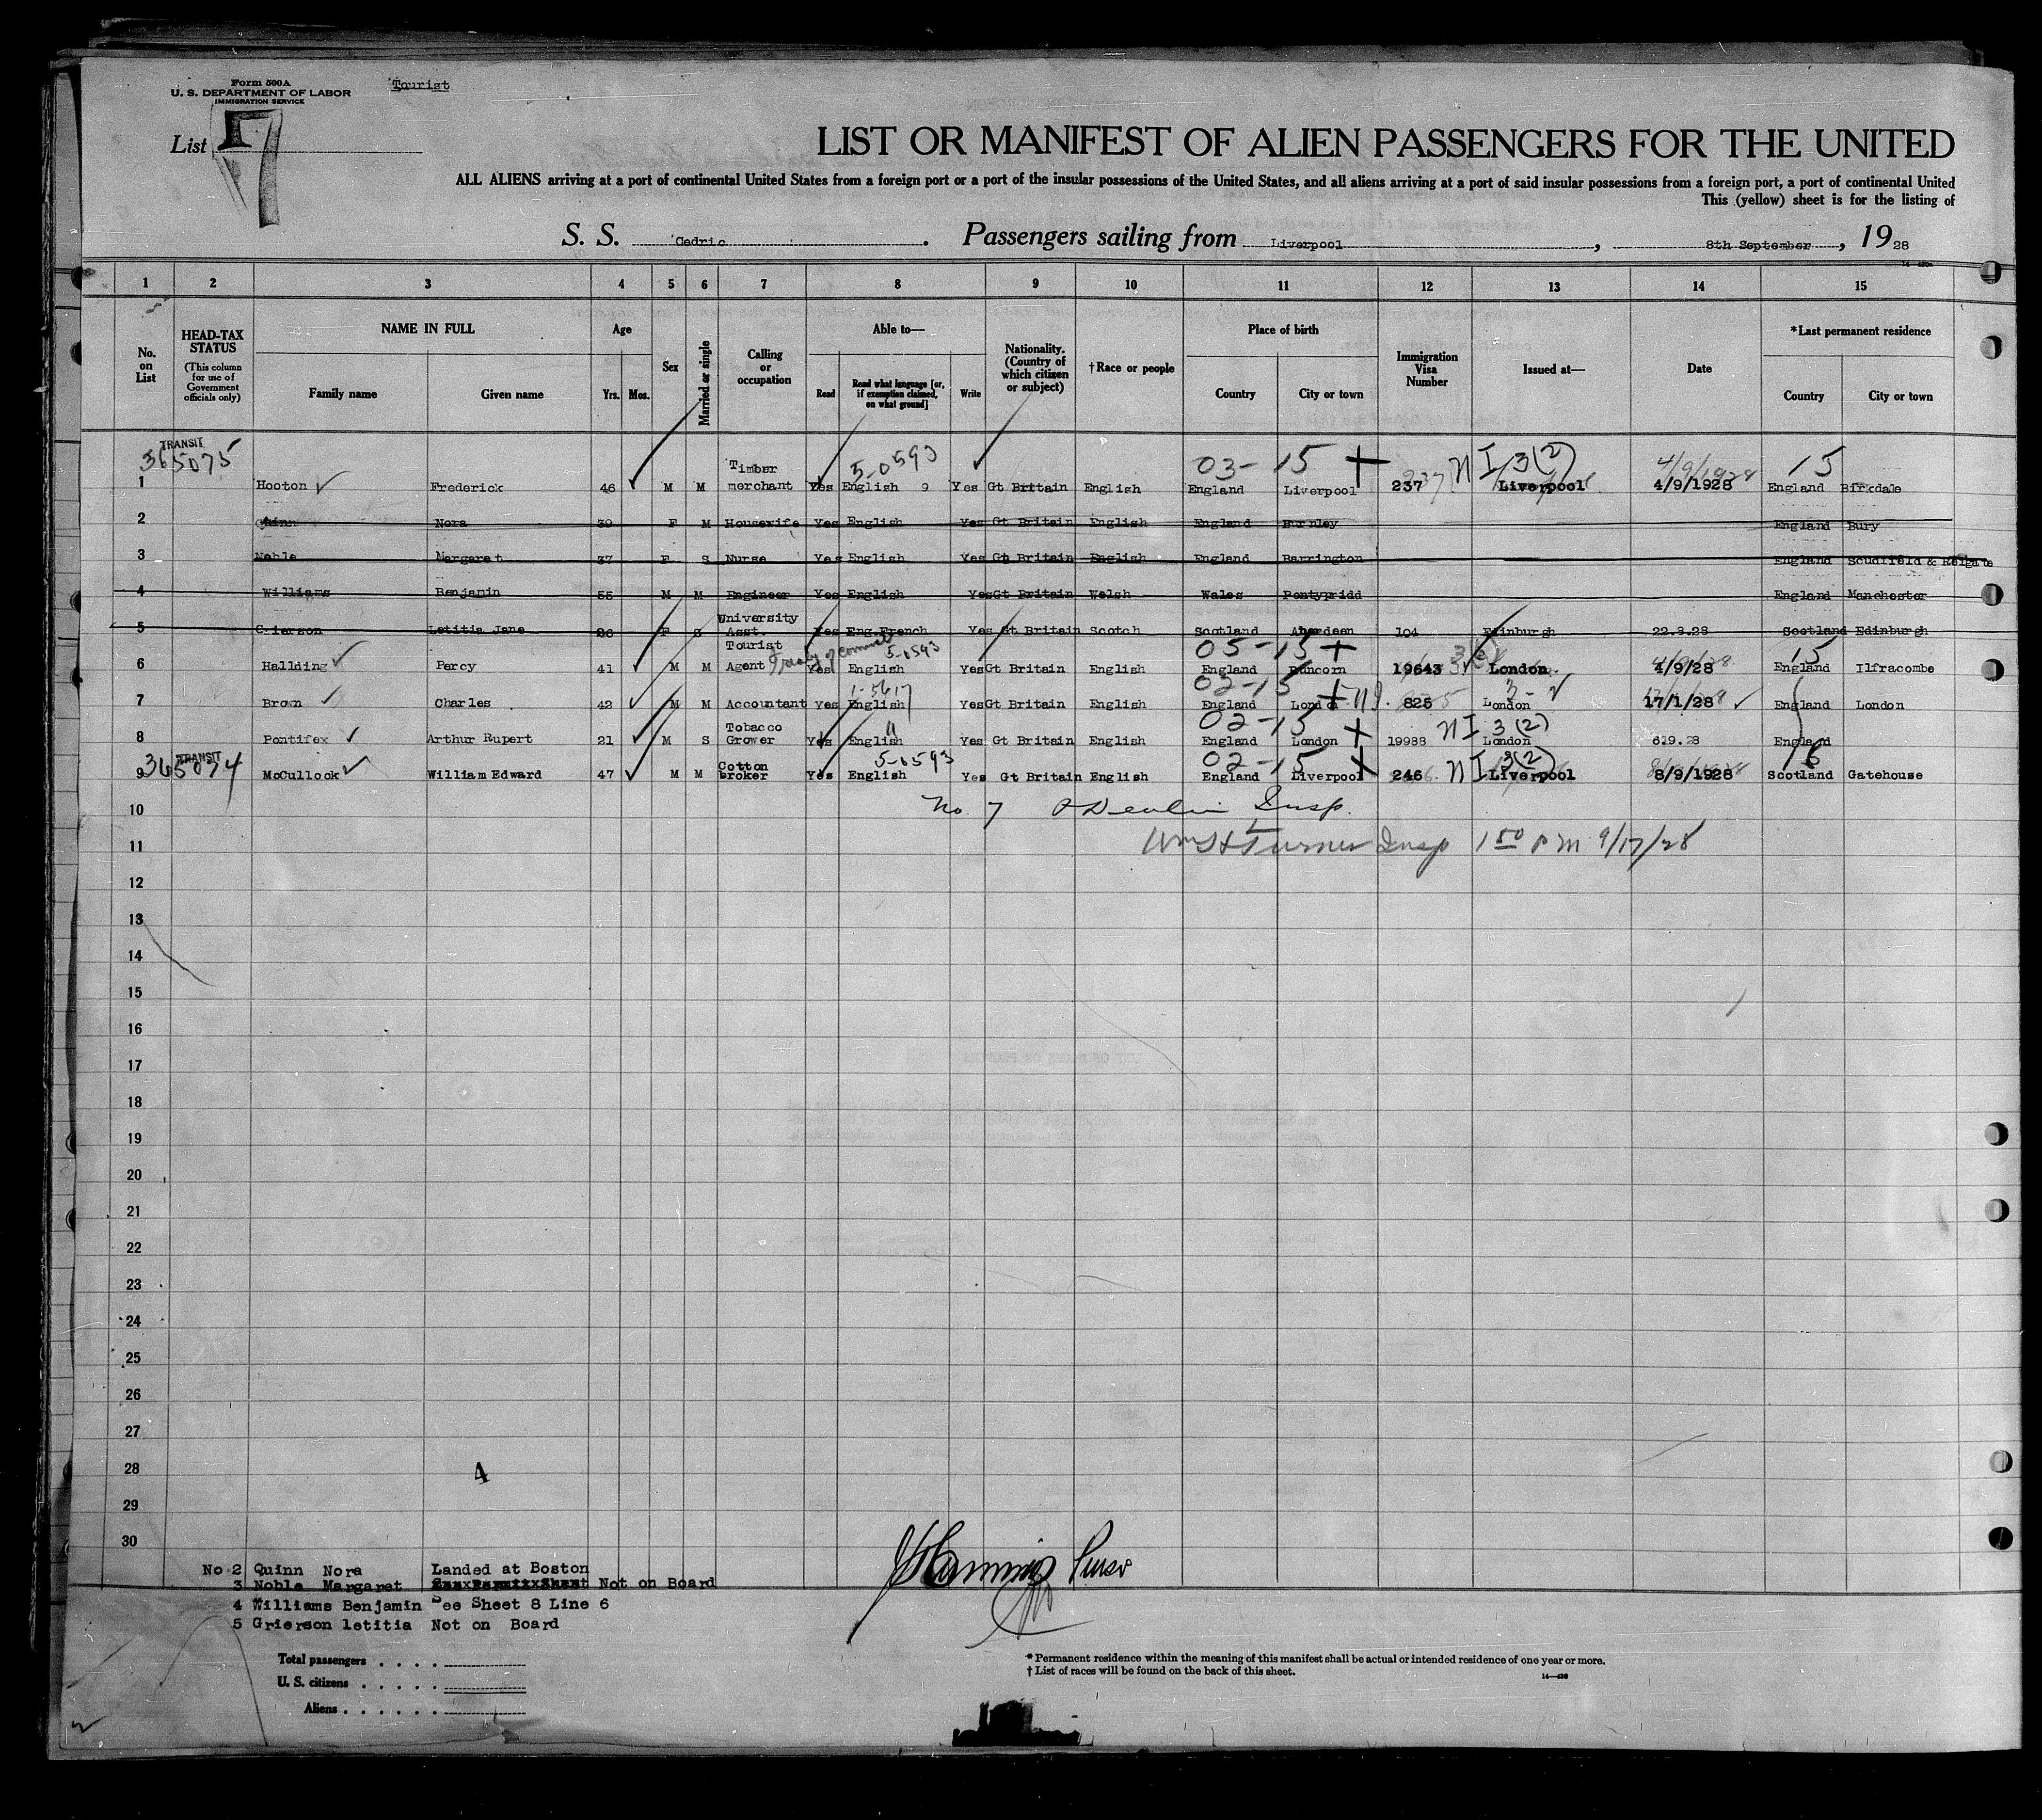 Form 500A
U. S. DEPARTMENT OF LABOR
IMMIGRATION SERVICE
Tourist
List 7
LIST OR MANIFEST OF ALIEN PASSENGERS FOR THE UNITED
ALL ALIENS arriving at a port of continental United States from a foreign port or a port of the insular possessions of the United States, and all aliens arriving at a port of said insular possessions from a foreign port, a port of continental United
This (yellow) sheet is for the listing of
S. S. Cedric. Passengers sailing from Liverpool, 8th September, 1928
1 2 3 4 5 6 7 8 9 10 11 12 13 14 15
No. on List
HEAD-TAX STATUS (This column for use of Government officials only)
NAME IN FULL Family name Given name
Age Yrs. Mos.
Sex
Married or single
Calling or occupation
Able to— Read Read what language [or, if exemption claimed, on what ground] Write
Nationality. (Country of which citizen or subject)
†Race or people
Place of birth Country City or town
Immigration Visa Number
Issued at—
Date
*Last permanent residence Country City or town
TRANSIT 365075 5-0593 03-15 + NI 3(2) 4/9/1928 15
1 Hooton Frederick 46 M M Timber merchant Yes English 9 Yes Gt Britain English England Liverpool 237 Liverpool 4/9/1928 England Birkdale
2 Quinn Nora 39 F M Housewife Yes English Yes Gt Britain English England Burnley England Bury
3 Noble Margaret 37 F S Nurse Yes English Yes Gt Britain English England Barrington England & Reigate
4 Williams Benjamin 55 M M Engineer Yes English Yes Gt Britain Welsh Wales Pontypridd England Manchester
5 Grierson Letitia Jane 26 F S University Asst. Yes Eng.French Yes Gt Britain Scotch Scotland Aberdeen 104 Edinburgh 22.8.28 Scotland Edinburgh
Treaty of commerce 5-0593 05-15 + 3(2) 15
6 Hallding Percy 41 M M Tourist Agent Yes English Yes Gt Britain English England Runcorn 19643 London 4/9/28 England Ilfracombe
1-5617 02-15 +
7 Brown Charles 42 M M Accountant Yes English Yes Gt Britain English England London 825 London 17/1/28 England London
02-15 + NI 3(2)
8 Pontifex Arthur Rupert 21 M S Tobacco Grower Yes English Yes Gt Britain English England London 19988 London 6.9.28 England
TRANSIT 365074 5-0593 02-15 + NI 3(2) 16
9 McCullock William Edward 47 M M Cotton broker Yes English Yes Gt Britain English England Liverpool 246 Liverpool 8/9/1928 Scotland Gatehouse
10 No 7 Insp.
11 Wm H Turner Insp 1 50 P M 9/17/28
12
13
14
15
16
17
18
19
20
21
22
23
24
25
26
27
28 4
29
30
No 2 Quinn Nora Landed at Boston
3 Noble Margaret Not on Board
4 Williams Benjamin See Sheet 8 Line 6
5 Grierson letitia Not on Board
Purser
Total passengers . . . .
U. S. citizens . . . . .
Aliens . . . . . .
* Permanent residence within the meaning of this manifest shall be actual or intended residence of one year or more.
† List of races will be found on the back of this sheet.
14—430